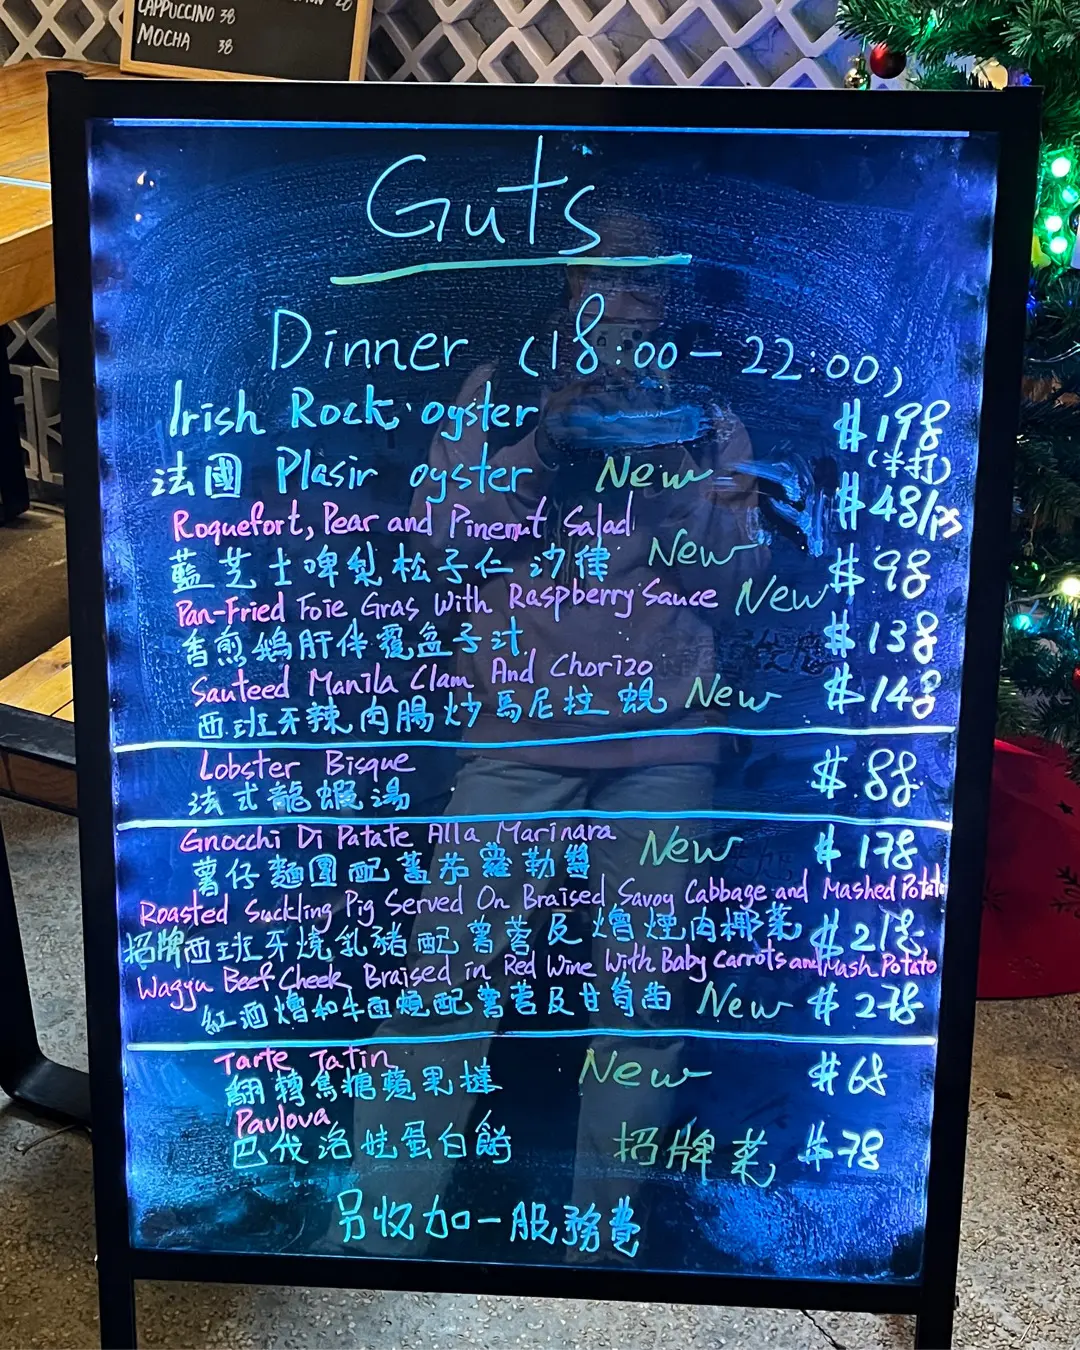 CAPPUCCINO 38
MOCHA 38
Guts
Dinner (18:00-22:00)
Irish Rock oyster $198
(半打)
法國 Plasir oyster New $48/ps
Roquefort, Pear and Pinenut Salad
藍芝士啤梨松子仁沙律 New $98
Pan-Fried Foie Gras With Raspberry Sauce New
香煎鵝肝伴覆盆子汁 $138
Sauteed Manila Clam And Chorizo
西班牙辣肉腸炒馬尼拉蜆 New $148
Lobster Bisque
法式龍蝦湯 $88
Gnocchi Di Patate Alla Marinara
薯仔麵團配蕃茄羅勒醬 New $178
Roasted Suckling Pig Served On Braised Savoy Cabbage and Mashed Potato
招牌西班牙燒乳豬配薯蓉及燴煙肉椰菜 $218
Wagyu Beef Cheek Braised in Red Wine With Baby Carrots and Mash Potato
紅酒燴和牛面頰配薯蓉及甘荀 New $278
Tarte Tatin
翻轉焦糖蘋果撻 New $68
Pavlova
巴伐洛娃蛋白餅 招牌菜 $78
另收加一服務費